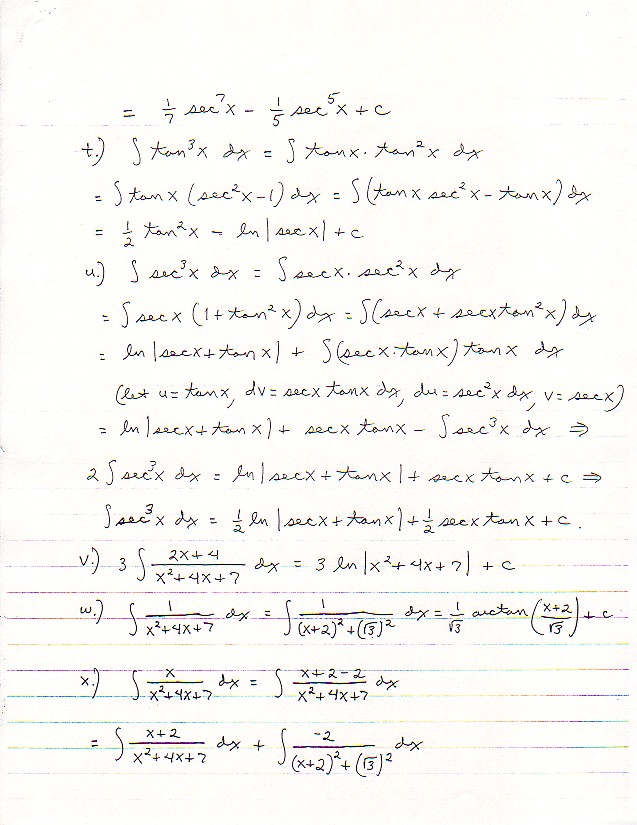 = 1/7 sec⁷x − 1/5 sec⁵x + c
t.) ∫ tan³x dx = ∫ tanx · tan²x dx
= ∫ tanx (sec²x−1) dx = ∫(tanx sec²x − tanx) dx
= 1/2 tan²x − ln|secx| + c
u.) ∫ sec³x dx = ∫ secx · sec²x dx
= ∫ secx (1+tan²x) dx = ∫(secx + secxtan²x) dx
= ln|secx+tanx| + ∫(secx·tanx) tanx dx
(let u=tanx, dv=secx tanx dx, du=sec²x dx, v=secx)
= ln|secx+tanx| + secx tanx − ∫sec³x dx ⇒
2∫sec³x dx = ln|secx+tanx| + secx tanx + c ⇒
∫sec³x dx = 1/2 ln|secx+tanx| + 1/2 secx tanx + c.
v.) 3∫ (2x+4)/(x²+4x+7) dx = 3 ln|x²+4x+7| + c
w.) ∫ 1/(x²+4x+7) dx = ∫ 1/((x+2)²+(√3)²) dx = 1/√3 arctan((x+2)/√3) + c
x.) ∫ x/(x²+4x+7) dx = ∫ (x+2−2)/(x²+4x+7) dx
= ∫ (x+2)/(x²+4x+7) dx + ∫ −2/((x+2)²+(√3)²) dx